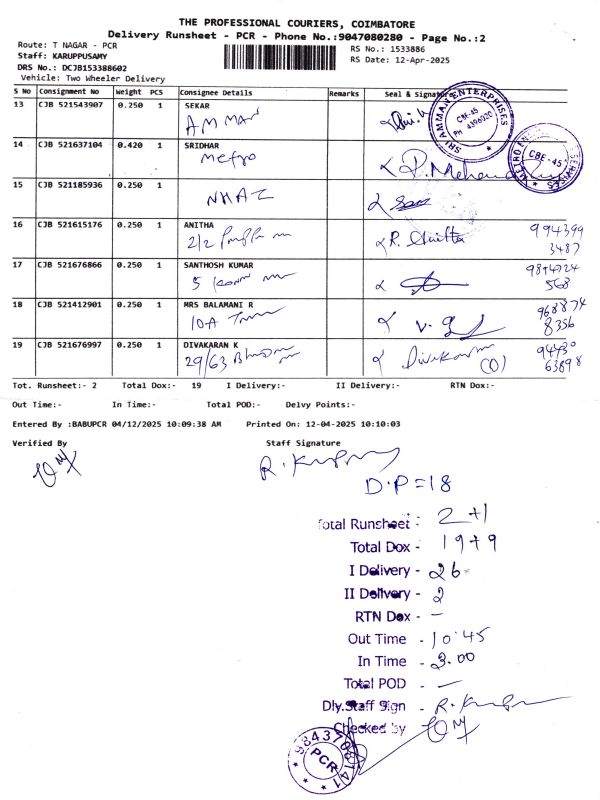 THE PROFESSIONAL COURIERS, COIMBATORE
Delivery Runsheet - PCR - Phone No.:9047080280 - Page No.:2
Route: T NAGAR - PCR
Staff: KARUPPUSAMY
DRS No.: DCJB153388602
Vehicle: Two Wheeler Delivery
RS No.: 1533886
RS Date: 12-Apr-2025
S No Consignment No Weight PCS Consignee Details Remarks Seal & Signature
13 CJB 521543907 0.250 1 SEKAR
AMMAN
SRI AMMAN ENTERPRISES
CBE-45
14 CJB 521637104 0.420 1 SRIDHAR
Metro
CBE-45
15 CJB 521185936 0.250 1
16 CJB 521615176 0.250 1 ANITHA
2/2
R. Anitha
994399
3487
17 CJB 521676866 0.250 1 SANTHOSH KUMAR
5
568
18 CJB 521412901 0.250 1 MRS BALAMANI R
10A
968874
8356
19 CJB 521676997 0.250 1 DIVAKARAN K
29/63
Divakaran
94430
63898
Tot. Runsheet:- 2 Total Dox:- 19 I Delivery:- II Delivery:- RTN Dox:-
Out Time:- In Time:- Total POD:- Delvy Points:-
Entered By :BABUPCR 04/12/2025 10:09:38 AM Printed On: 12-04-2025 10:10:03
Verified By Staff Signature
D.P=18
Total Runsheet : 2+1
Total Dox - 19+9
I Delivery - 26
II Delivery - 2
RTN Dox - —
Out Time - 10.45
In Time - 3.00
Total POD - —
Dly.Staff Sign -
Checked by
PCR